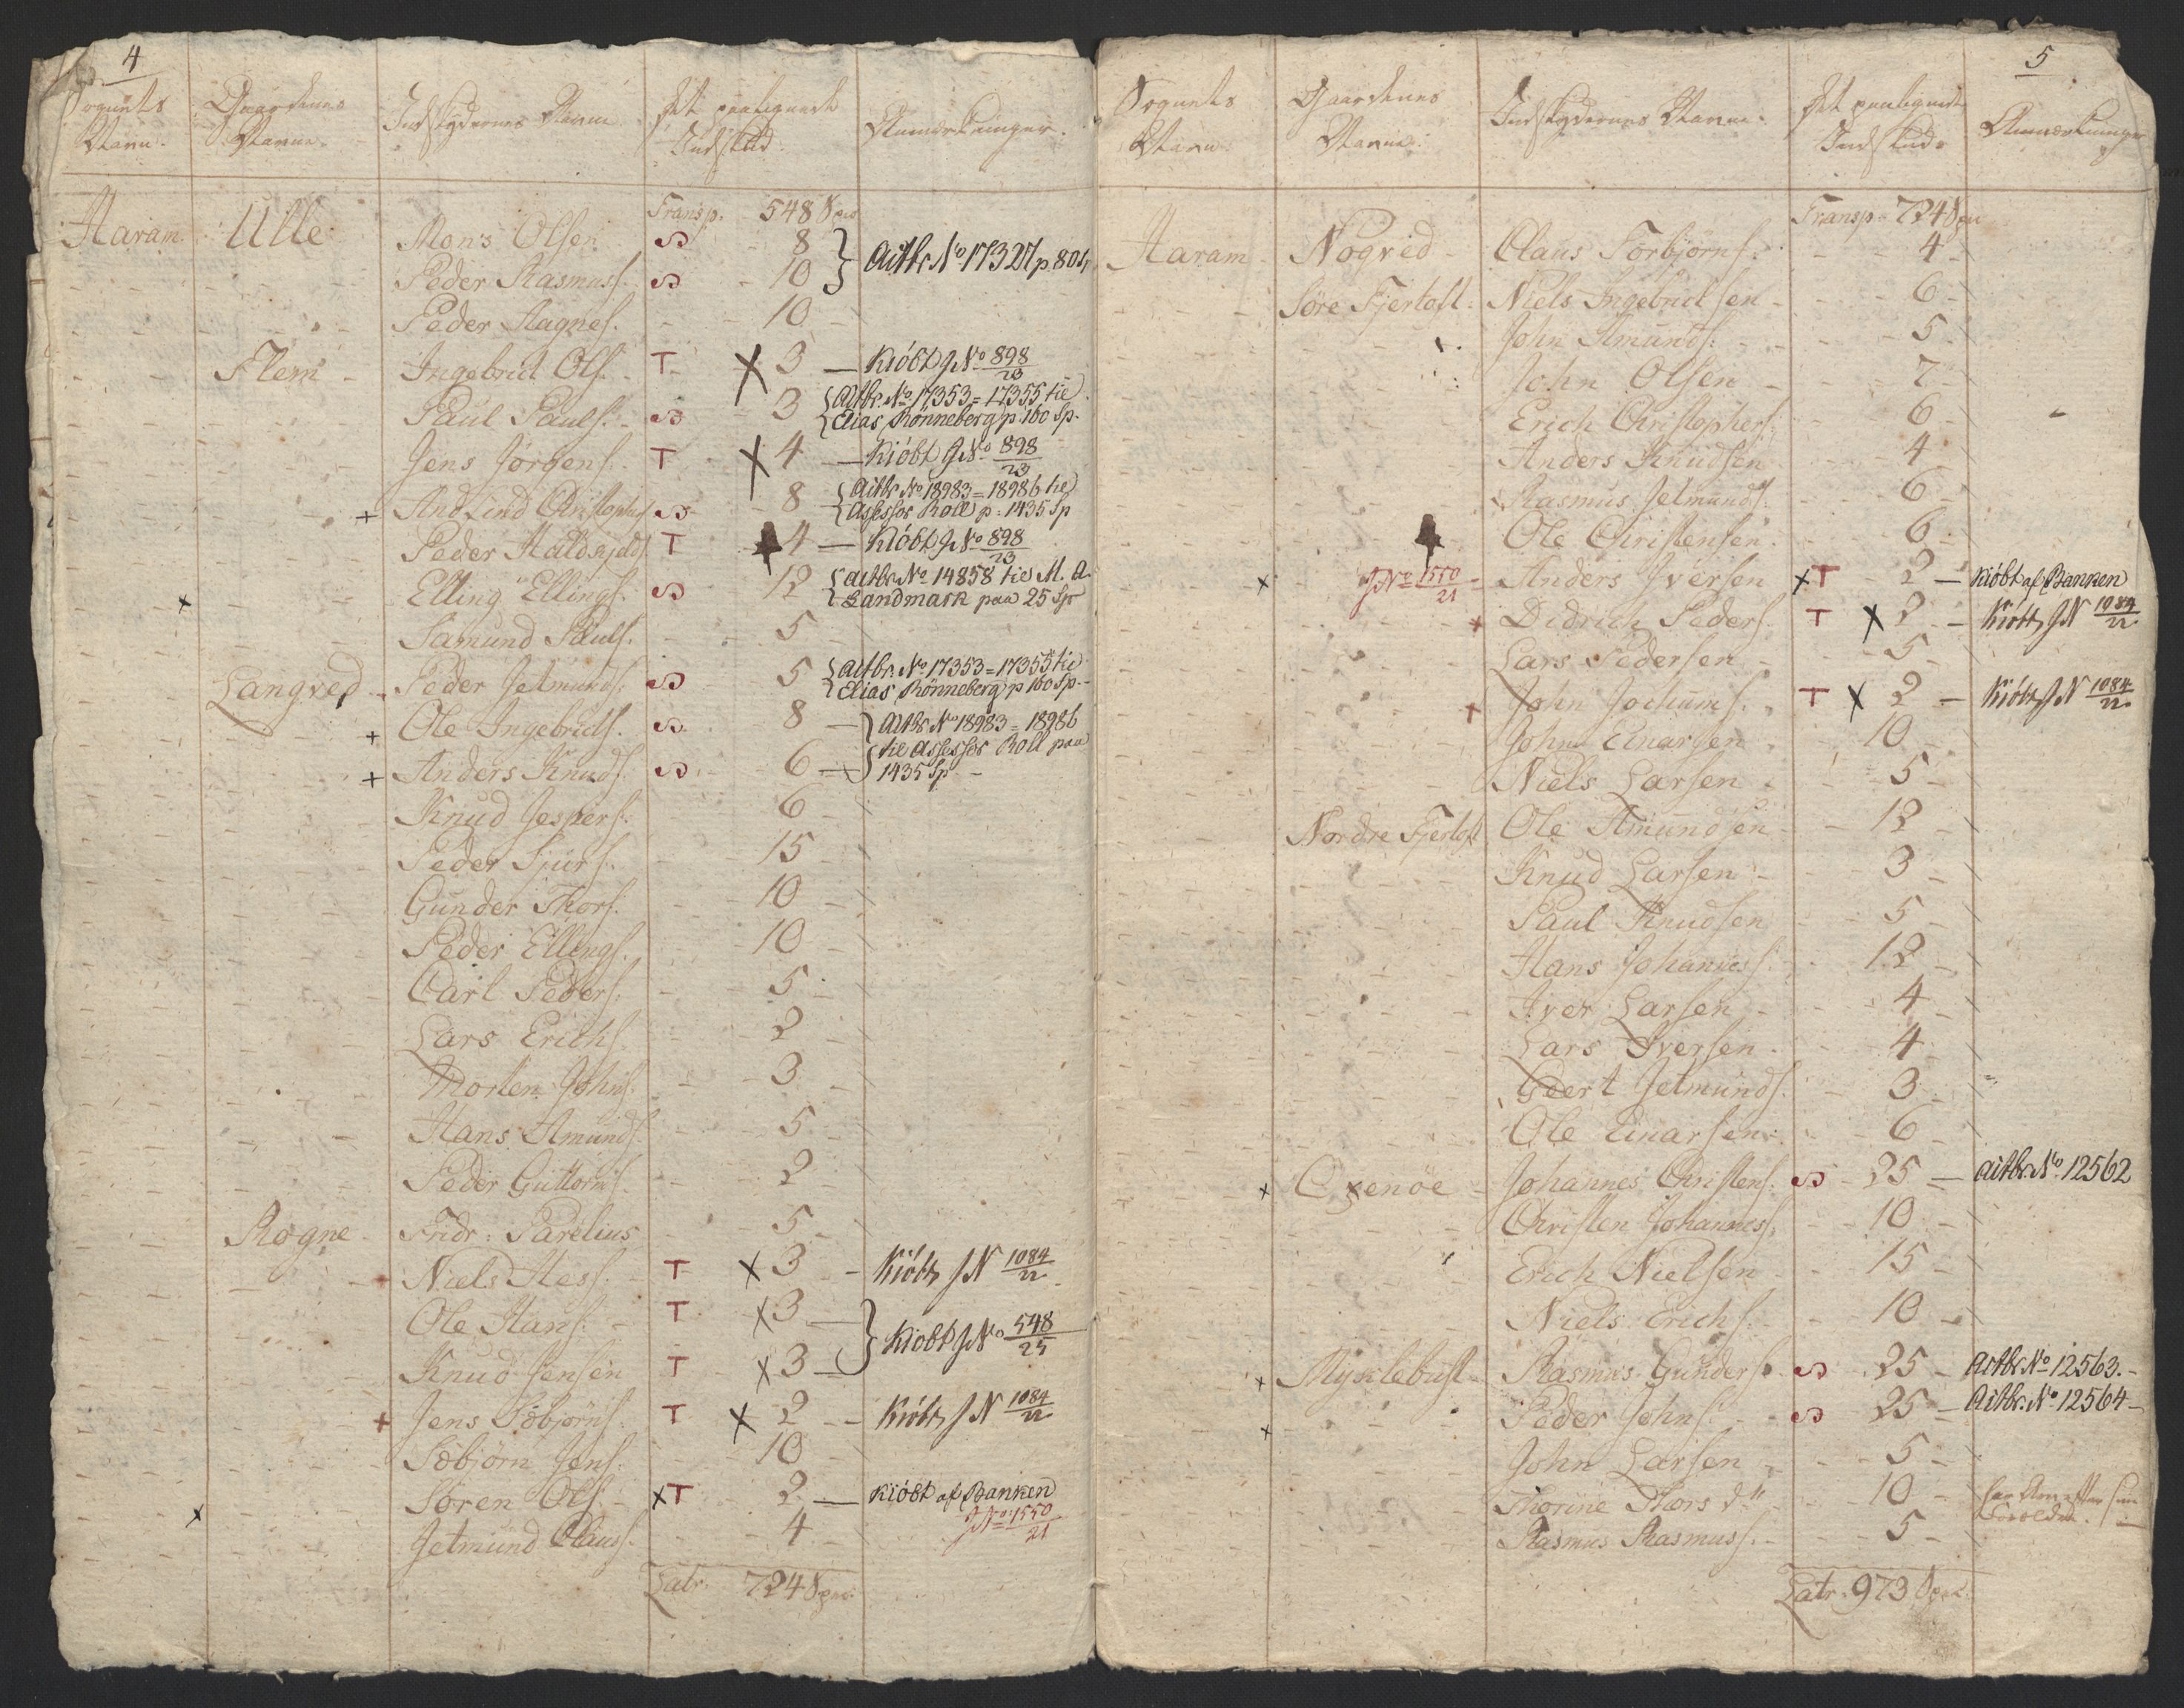 4
Sognets Navn. Gaardenes Navne. Indskydernes Navne. Det paalignede Indskud. Anmærkninger.
Transp. 548 Spec
Haram. Ulle Mons Olsen S 8 } Actbr No 17327 p. 80
Peder Rasmuss. S 10
Peder Hagnes. 10
Flem Ingebrict Ols. T X 3 — Kiöbt J No 898/23
Paul Pauls. S 3 { Actbr. No 17353 = 17355 til
Elias Rönneberg p 160 Sp.
Jens Jörgens. T X 4 — Kiöbt J No 898/23
+ And Lind Christophs S 8 { Actbr No 18983 = 18986 til
Assessor Roll p: 1435 Sp
Peder Haldkjelds. T 4 — Kiöbt J No 898/23
x Elling Ellings. S 12 { actbr No 14858 til M. A.
Landmark paa 25 Sp
Samund Pauls. 5
Langved Peder Jetmunds. S 5 { Actbr. No 17353 = 17355 til
Elias Rönneberg p 160 Sp.
+ Ole Ingebricts. S 8 — } Actbr No 18983 = 18986
+ Anders Knuds. S 6 — til Assessor Roll paa
1435 Sp
Knud Jespers. 6
Peder Sjurs. 15
Gunder Thors. 10
Peder Ellings. 10
Carl Peders. 5
Lars Erichs. 2
Morten Johns. 3
Hans Amunds. 5
Peder Guttorms. 2
Rogne Fridr: Parelius 5
+ Niels Hess. T X 3 — Kiöbt J N 1084/22
Ole Hans. T X 3 — } Kiöbt J No 548/25
Knud Jensen T X 3 —
+ Jens Sæbjörns. T X 2 — Kiöbt J N 1084/22
Sæbjörn Jens. 10
x Sören Ols. XT 2 — Kiöbt af Banken
J No 1550/21
Jetmund Claus. 4
Latr. 724 Spec.
5
Sognets Navn. Gaardenes Navne. Indskydernes Navne. Det paalignede Indskud. Anmærkninger
Transp. 724 Spec
Haram Nogved Claus Torbjörns. 4
Söre Fjertoft. Niels Ingebrictsen 6
John Amunds. 5
John Olsen 7
Erich Christophers. 6
Anders Knudsen 4
Rasmus Jetmunds. 6
Ole Christensen 6
x J No 1550/21 Anders Iversen XT 2 — Kiöbt af Banken
+ Didrich Peders. T X 2 — Kiöbt J N 1084/22
Lars Pedersen 5
+ John Jochums. T X 2 — Kiöbt J N 1084/22
John Einarsen 10
Niels Larsen 5
Nordre Fjertoft Ole Amundsen 12
Knud Larsen 3
Paul Knudsen 5
Hans Johanness. 12
Iver Larsen 4
Lars Iversen 4
Geert Jetmunds. 3
Ole Einarsen. 6
x Oxenöe Johannes Christens. S 25 — Actbr. No 12562
Christen Johanness. 10
Erich Nielsen 15
Niels Erichs. 10
x Myklebust Rasmus Gunders. S 25 Actbr No 12563.
x Peder Johns. S 25 — Actbr. No 12564
John Larsen 5
Thorine Thors dtr 10
Rasmus Rasmuss. 5
Latr. 973 Spec.